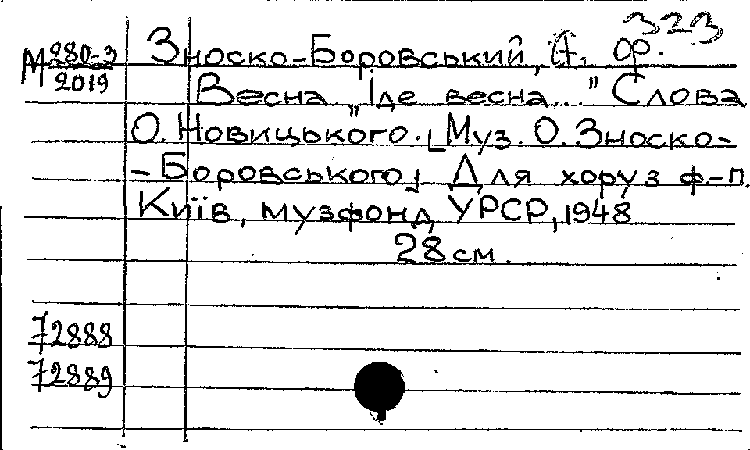 323
М 980-3/2019
Зноско-Боровський, О. ф.
Весна „Іде весна..." Слова
О. Новицького. [Муз. О. Зноско-
-Боровського] Для хору з ф.-п.
Київ, музфонд УРСР, 1948
28 см.
72888
72889